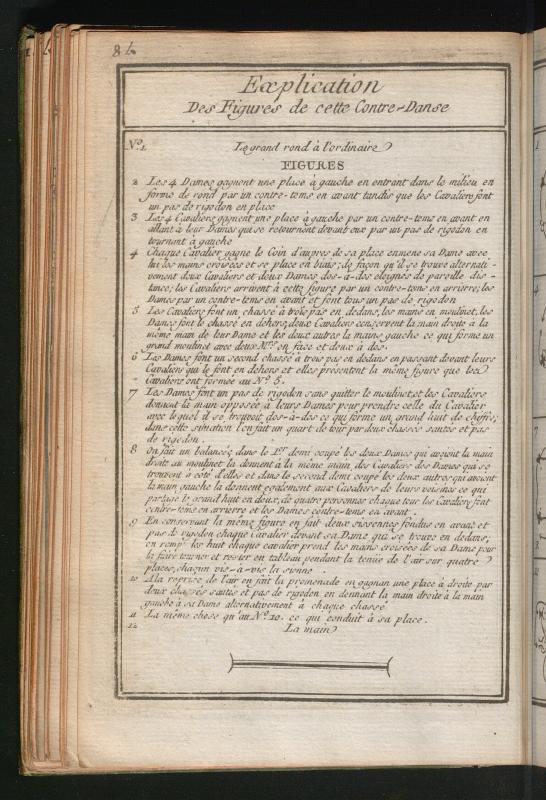 84
Explication
Des Figures de cette Contre-Danse
No. 1. Le grand rond à l'ordinaire
FIGURES
2 Les 4 Dames gagnent une place à gauche en entrant dans le milieu en
forme de rond par un contre-tems en avant tandis que les Cavaliers font
un pas de rigodon en place
3 Les 4 Cavaliers gagnent une place à gauche par un contre-tems en avant en
allant à leur Dames qui se retournent devant eux par un pas de rigodon en
tournant à gauche
4 Chaque Cavalier gagne le Coin d'aupres de sa place enmene sa Dame avec
lui les mains croisées et se place en biais; de façon qu'il se trouve alternati-
vement deux Cavaliers et deux Dames dos-à-dos eloignés de pareille dis-
tance; les Cavaliers arrivent à cette figure par un contre-tems en arriere; les
Dames par un contre-tems en avant et font tous un pas de rigodon
5 Les Cavaliers font un chassé à trois pas en dedans, les mains en moulinet, les
Dames font le chassé en dehors, deux Cavaliers conservent la main droite à la
même main de leur Dame et les deux autres la main gauche ce qui forme un
grand moulinet avec deux en face et deux à dos.
6 Les Dames font un second chassé à trois pas en dedans en passant devant leurs
Cavaliers qui le font en dehors et elles présentent la même figure que les
Cavaliers ont formée au No. 5.
7 Les Dames font un pas de rigodon sans quitter le moulinet, et les Cavaliers
donnent la main opposée à leurs Dames pour prendre celle du Cavalier
avec lequel il se trouvoit dos-à-dos ce qui forme un grand huit de chiffre;
dans cette situation l'on fait un quart de tour par deux chassés sautés et pas
de rigodon.
8 On fait un balancez; dans le 1.er demi coupé les deux Dames qui avoient la main
droite au moulinet la donnent à la même main, des Cavaliers des Dames qui se
trouvent à côté d'elles et dans le second demi coupé les deux autres qui avoient
la main gauche la donnent également aux Cavaliers de leurs voisines ce qui
partage le grand huit en deux, de quatre personnes chaque tour les Cavaliers font
contre-tems en arriere et les Dames contre-tems en avant.
9 En conservant la même figure on fait deux sissonnes fondus en avant et
pas de rigodon chaque Cavalier devant sa Dame qui se trouve en dedans,
on rompt les huit chaque cavalier prend les mains croisées de sa Dame pour
la faire tourner et rester en tableau pendant la tenüe de l'air sur quatre
places, chaqun vis-à-vis la sienne.
10 A la reprise de l'air on fait la promenade en gagnan une place à droite par
deux chassés sautés et pas de rigodon en donnant la main droite à la main
gauche à sa Dame alternativement à chaque chassé
11 La même chose qu'au No. 10. ce qui conduit à sa place.
12 La main